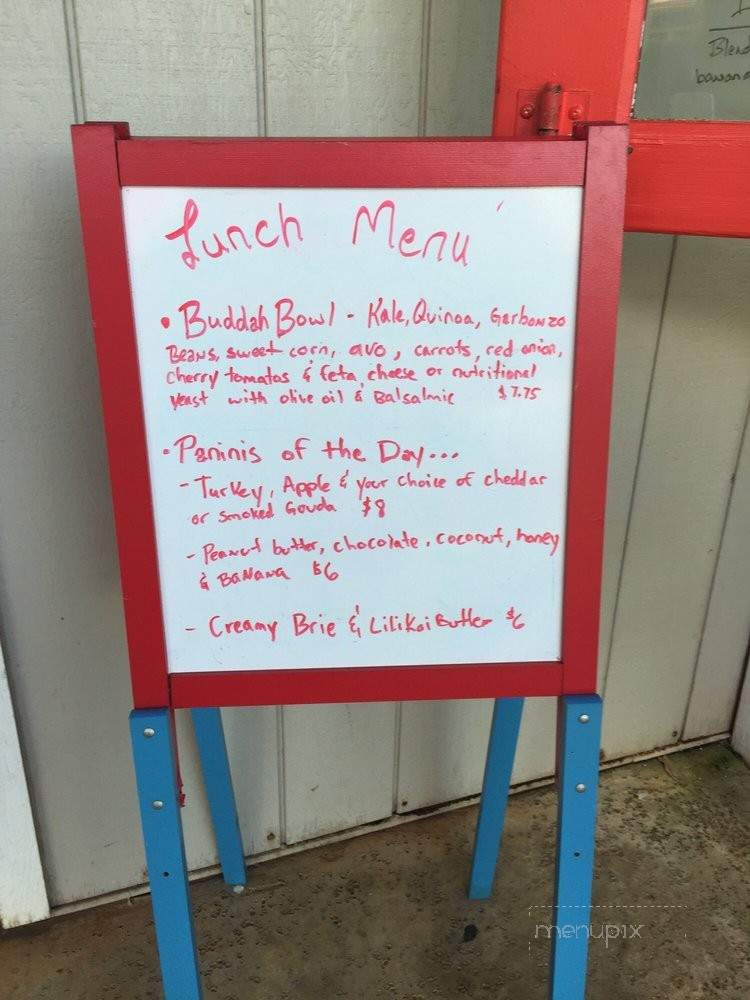 Lunch Menu
• Buddah Bowl - Kale, Quinoa, Garbonzo
Beans, sweet corn, avo, carrots, red onion,
cherry tomatos & feta cheese or nutritional
yeast with olive oil & Balsalmic $7.75
• Paninis of the Day...
- Turkey, Apple & your choice of cheddar
or smoked Gouda $8
- Peanut butter, chocolate, coconut, honey
& Banana $6
- Creamy Brie & Lilikoi Butter $6
Blend
banana
menupix